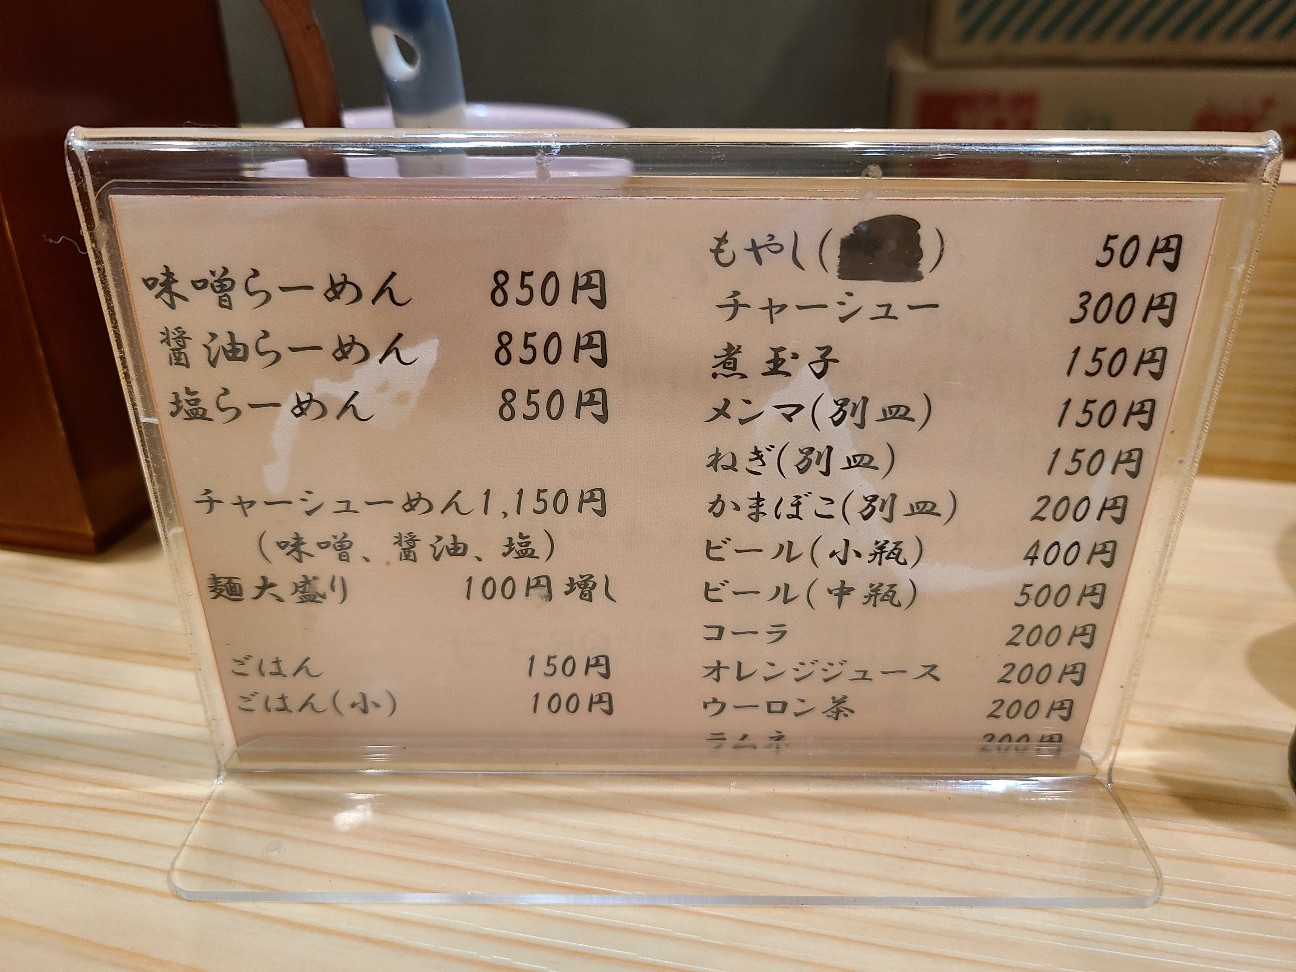 味噌らーめん 850円
醤油らーめん 850円
塩らーめん 850円
チャーシューめん 1,150円
(味噌、醤油、塩)
麺大盛り 100円増し
ごはん 150円
ごはん(小) 100円
もやし( ) 50円
チャーシュー 300円
煮玉子 150円
メンマ(別皿) 150円
ねぎ(別皿) 150円
かまぼこ(別皿) 200円
ビール(小瓶) 400円
ビール(中瓶) 500円
コーラ 200円
オレンジジュース 200円
ウーロン茶 200円
ラムネ 200円